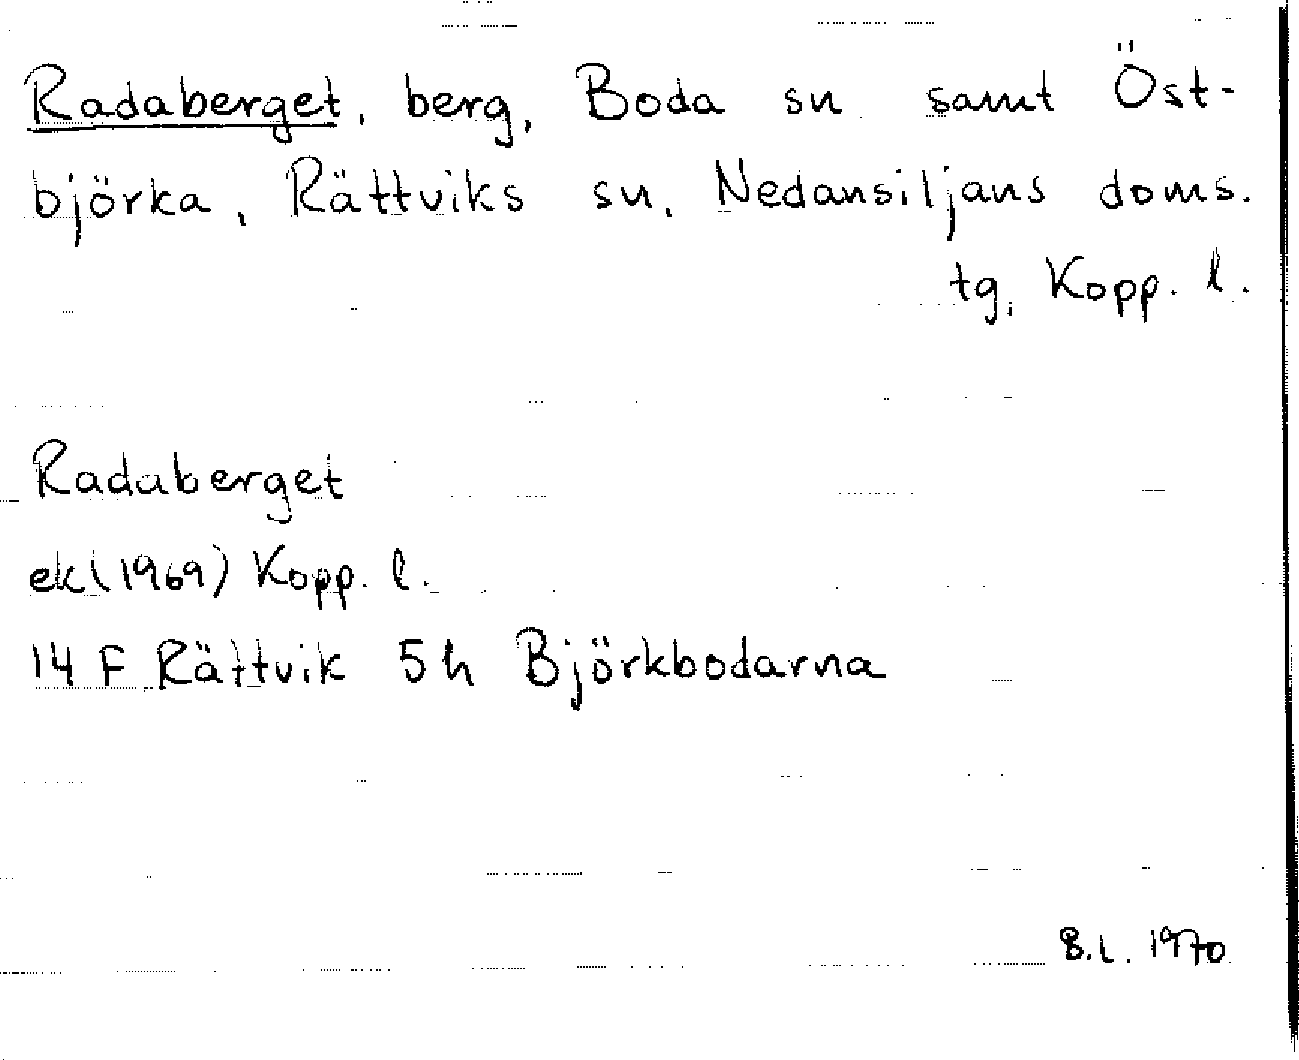 Radaberget, berg, Boda sn samt Öst-
björka, Rättviks sn, Nedansiljans doms.
tg, Kopp. l.
Radaberget
ek (1969) Kopp. l.
14 F Rättvik 5h Björkbodarna
8.1. 1970